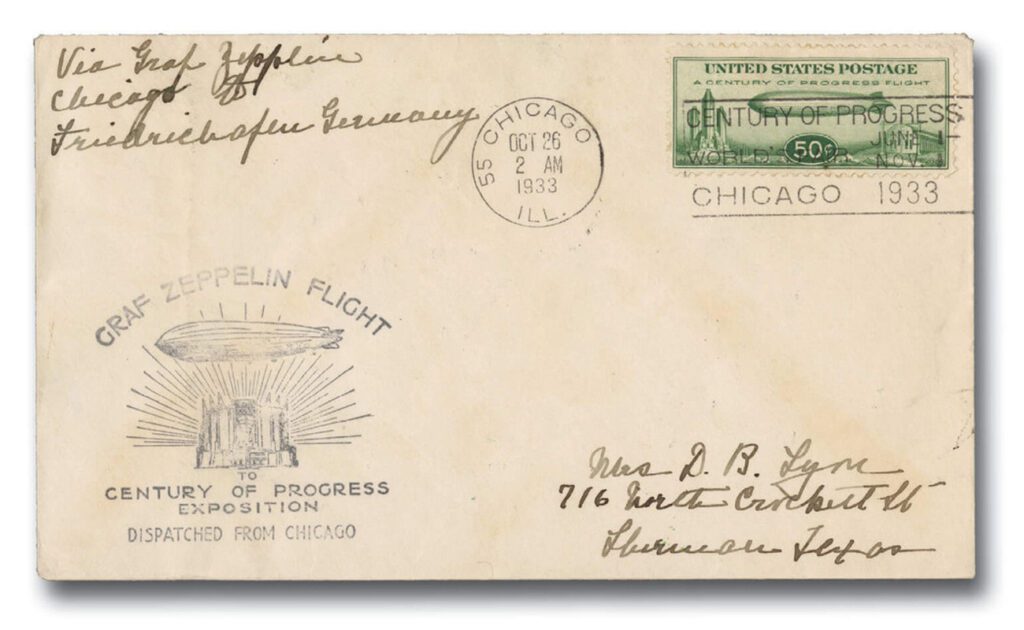 Via Graf Zepplin
Chicago to
Friedrichafen Germany
55 CHICAGO
OCT 26
2 AM
1933
ILL.
UNITED STATES POSTAGE
A CENTURY OF PROGRESS FLIGHT
50¢
CENTURY OF PROGRESS
WORLD'S FAIR JUNE 1
NOV. 1
CHICAGO 1933
GRAF ZEPPELIN FLIGHT
TO
CENTURY OF PROGRESS
EXPOSITION
DISPATCHED FROM CHICAGO
Mrs D. B. Lyon
716 North Crockett St
Sherman Texas